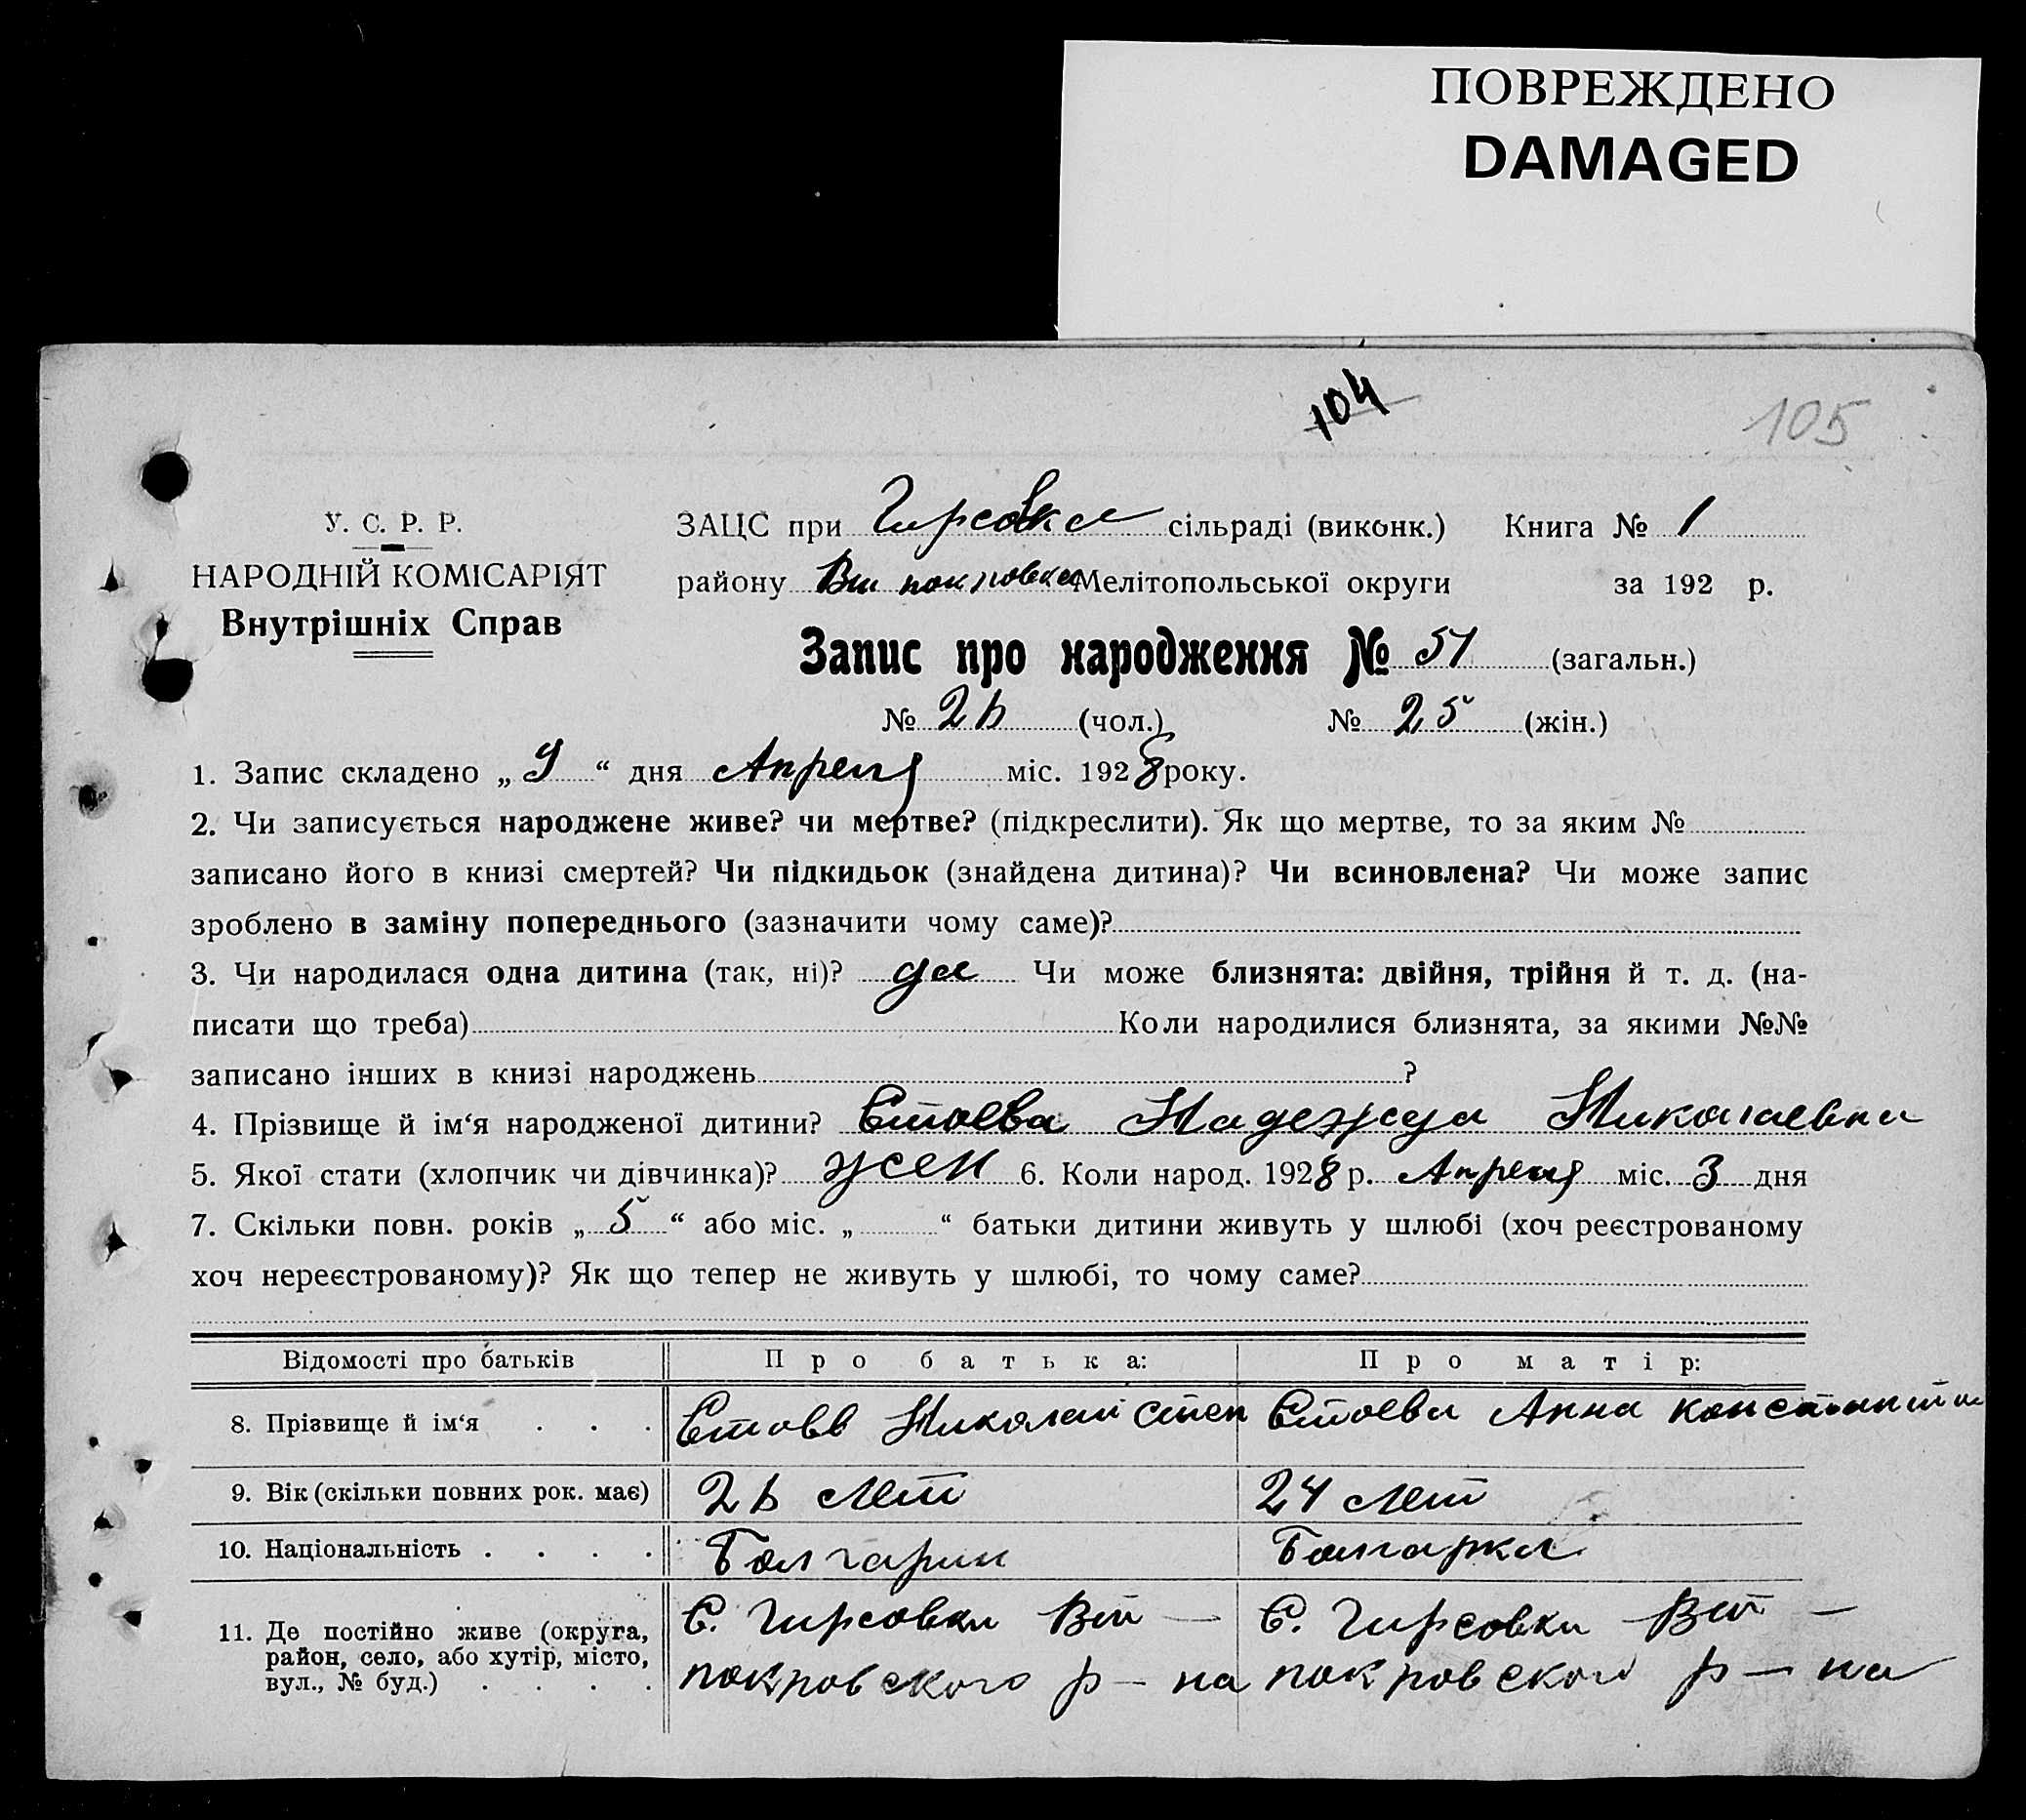 ПОВРЕЖДЕНО
DAMAGED
104
105
У. С. Р. Р.
НАРОДНІЙ КОМІСАРІЯТ
Внутрішніх Справ
ЗАЦС при Гирсовка сільраді (виконк.) Книга № 1
району Вт покровка Мелітопольської округи за 192 р.
Запис про народження № 51 (загальн.)
№ 26 (чол.) № 25 (жін.)
1. Запис складено „ 9 “ дня Апреля міс. 1928 року.
2. Чи записується народжене живе? чи мертве? (підкреслити). Як що мертве, то за яким №
записано його в книзі смертей? Чи підкидьок (знайдена дитина)? Чи всиновлена? Чи може запис
зроблено в заміну попереднього (зазначити чому саме)?
3. Чи народилася одна дитина (так, ні)? да Чи може близнята: двійня, трійня й т. д. (на-
писати що треба) Коли народилися близнята, за якими №№
записано інших в книзі народжень ?
4. Прізвище й ім‘я народженої дитини? Стоева Надежда Николаевна
5. Якої стати (хлопчик чи дівчинка)? жен 6. Коли народ. 1928 р. Апреля міс. 3 дня
7. Скільки повн. років „ 5 “ або міс. „ “ батьки дитини живуть у шлюбі (хоч реєстрованому
хоч нереєстрованому)? Як що тепер не живуть у шлюбі, то чому саме?
Відомості про батьків Про батька: Про матір:
8. Прізвище й ім‘я . . . Стоев Николай Степ Стоева Анна Константин
9. Вік (скільки повних рок. має) 26 лет 24 лет
10. Національність . . . . Болгарин Болгарка
11. Де постійно живе (округа, С. Гирсовки Вт — С. Гирсовки Вт —
район, село, або хутір, місто, покровского р – на покровского р – на
вул., № буд.) . . . .